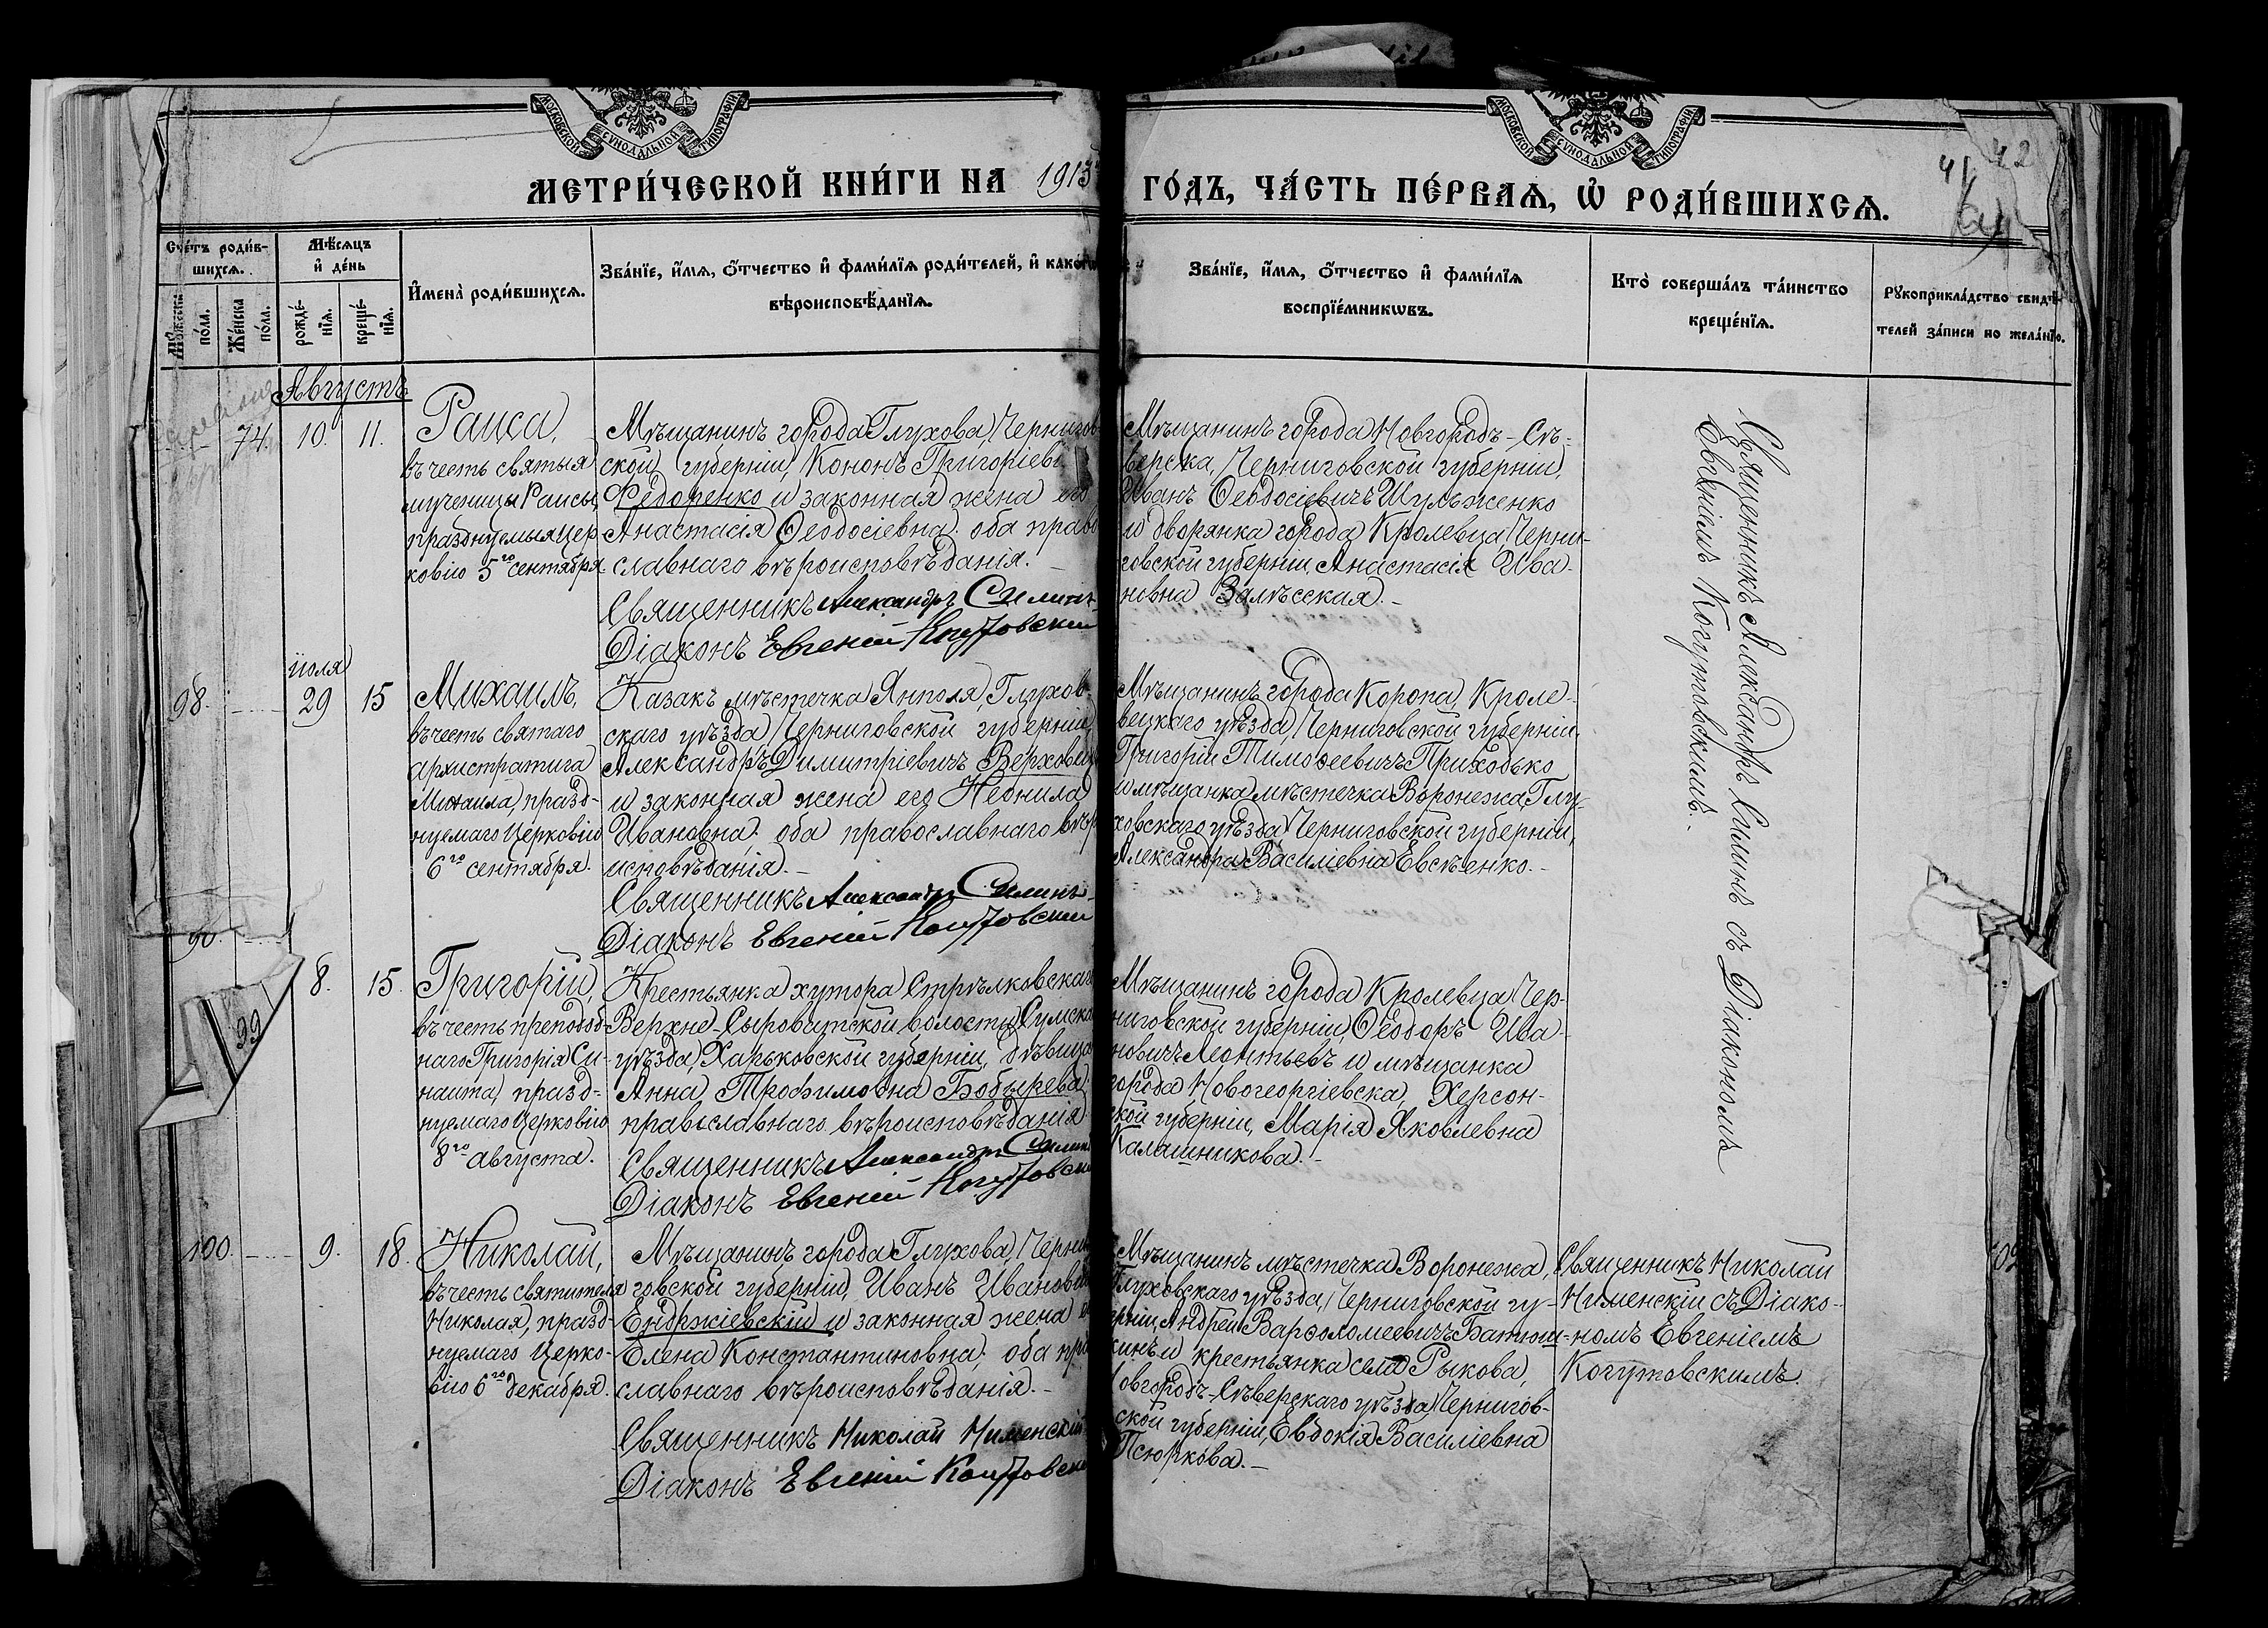 МОСКОВСКОЙ СѴНОДАЛЬНОЙ ТИПОГРАФІИ
МОСКОВСКОЙ СѴНОДАЛЬНОЙ ТИПОГРАФІИ
МЕТРИ́ЧЕСКОЙ КНИ́ГИ НА 1913
ГО́ДЪ, ЧА́СТЬ ПЕ́РВАѦ, Ѡ҆ РОДИ́ВШИХСѦ.
41
42
Сче́тъ роди́в-
шихсѧ.
Мѣ́сѧцъ
и҆ де́нь
Мꙋ́жеска
по́ла.
Же́нска
по́ла.
рожде́-
нїѧ.
креще́-
нїѧ.
И҆мена̀ роди́вшихсѧ.
Зва́нїе, и҆́мѧ, ѻ҆́тчество и҆ фами́лїѧ роди́телей, и҆ како́гѡ
вѣроисповѣ́данїѧ.
Зва́нїе, и҆́мѧ, ѻ҆́тчество и҆ фами́лїѧ
воспрїе́мникѡвъ.
Кто̀ соверша́лъ та́инство
креще́нїѧ.
Рꙋкоприкла́дство свидѣ́-
телей за́писи по жела́нїю.
Августъ
74.
10.
11.
Раиса,
въ честь святыя
мученицы Раисы,
празднуемыя Цер
ковію 5го сентября.
Мѣщанинъ города Глухова, Чернигов
ской губерніи, Кононъ Григоріеви
Федоренко и законная жена его
Анастасія Ѳеодосіевна. оба право
славнаго вѣроисповѣданія.
Священникъ Александръ Силинъ
Діаконъ Евгеній Когутовскій
Мѣщанинъ города Новгородъ-Сѣ-
верска, Черниговской губерніи,
Иванъ Ѳеодосіевичъ Шульженко
и дворянка города Кролевца, Черни-
говской губерніи, Анастасія Ива-
новна Залѣсская.-
Священникъ Александръ Силинъ съ Діакономъ
Евгеніемъ Когутовскимъ.
98.
іюля
29
15
Михаилъ,
въ честь святаго
архистратига
Михаила, празд-
нуемаго Церковію
6го сентября.
Казакъ мѣстечка Янполя, Глухов-
скаго уѣзда, Черниговской губерніи
Александръ Димитріевичъ Верховы
и законная жена его Неонила
Ивановна; оба православнаго вѣр
исповѣданія.-
Священникъ Александръ Силинъ
Діаконъ Евгеній Когутовскій
Мѣщанинъ города Коропа, Кроле-
вецкаго уѣзда, Черниговской губерніи,
Григорій Тимоѳеевичъ Приходько
и мѣщанка мѣстечка Воронежа, Глу-
ховскаго уѣзда Черниговской губерніи,
Александра Василіевна Евсѣенко.-
99
8.
15.
Григорій,
въ честь преподоб-
наго Григорія Си-
наита, празд-
нуемаго Церковію
8го августа.
Крестьянка хутора Стрѣлковскаго
Верхне-Сыроватской волости, Сумска
уѣзда, Харьковской губерніи, дѣвица
Анна Трофимовна Бобырева,
православнаго вѣроисповѣданія
Священникъ Александръ Силинъ
Діаконъ Евгеній Когутовскі
Мѣщанинъ города Кролевца Чер-
ниговской губерніи, Ѳеодоръ Ива-
новичъ Леонтьевъ и мѣщанка
города Новогеоргіевска, Херсон-
ской губерніи, Марія Яковлевна
Калашникова.-
100.
9.
18.
Николай,
въ честь святителя
Николая, празд-
нуемаго Церко-
вію 6го декабря.
Мѣщанинъ города Глухова, Черни
говской губерніи, Иванъ Иванови
Ендржіевскій и законная жена е
Елена Константиновна; оба пра
славнаго вѣроисповѣданія.-
Священникъ Николай Именскій
Діаконъ Евгеній Когутовскі
Мѣщанинъ мѣстечка Воронежа,
Глуховскаго уѣзда, Черниговской гу-
ерніи Андрей Варѳоломеевичъ Батюш-
кинъ и крестьянка села Рыкова,
Новгородъ-Сѣверскаго уѣзда, Чернигов-
ской губерніи, Евдокія Василіевна
Псюркова.-
Священникъ Николай
Именскій съ Діако-
номъ Евгеніемъ
Когутовскимъ.